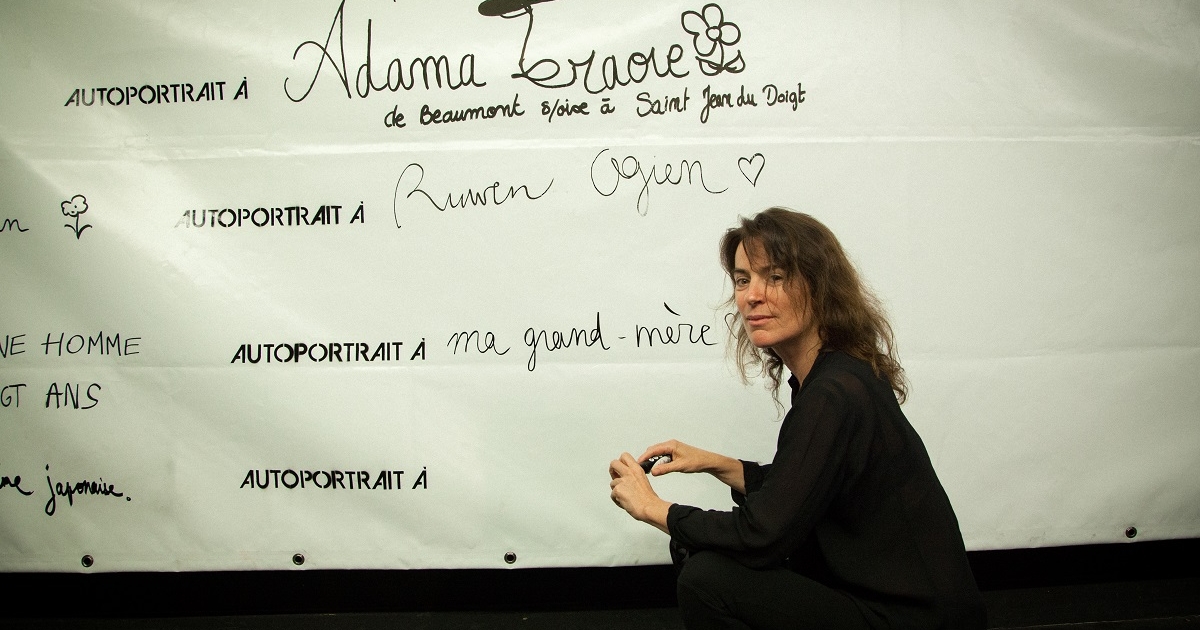 AUTOPORTRAIT À Adama Traore
de Beaumont s/oise à Saint Jean du Doigt
AUTOPORTRAIT À Ruwen Ogien
NE HOMME
AUTOPORTRAIT À ma grand-mère
GT ANS
AUTOPORTRAIT À
japonaise.